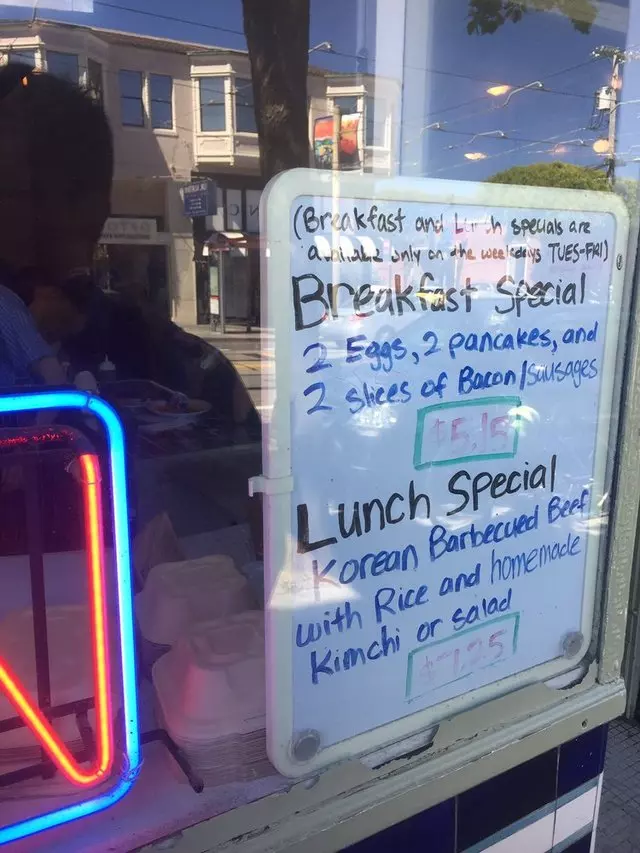 (Breakfast and Lunch specials are
available only on the weekdays TUES-FRI)
Breakfast Special
2 Eggs, 2 pancakes, and
2 slices of Bacon/sausages
$5.15
Lunch Special
Korean Barbecued Beef
with Rice and homemade
Kimchi or salad
$7.25
N